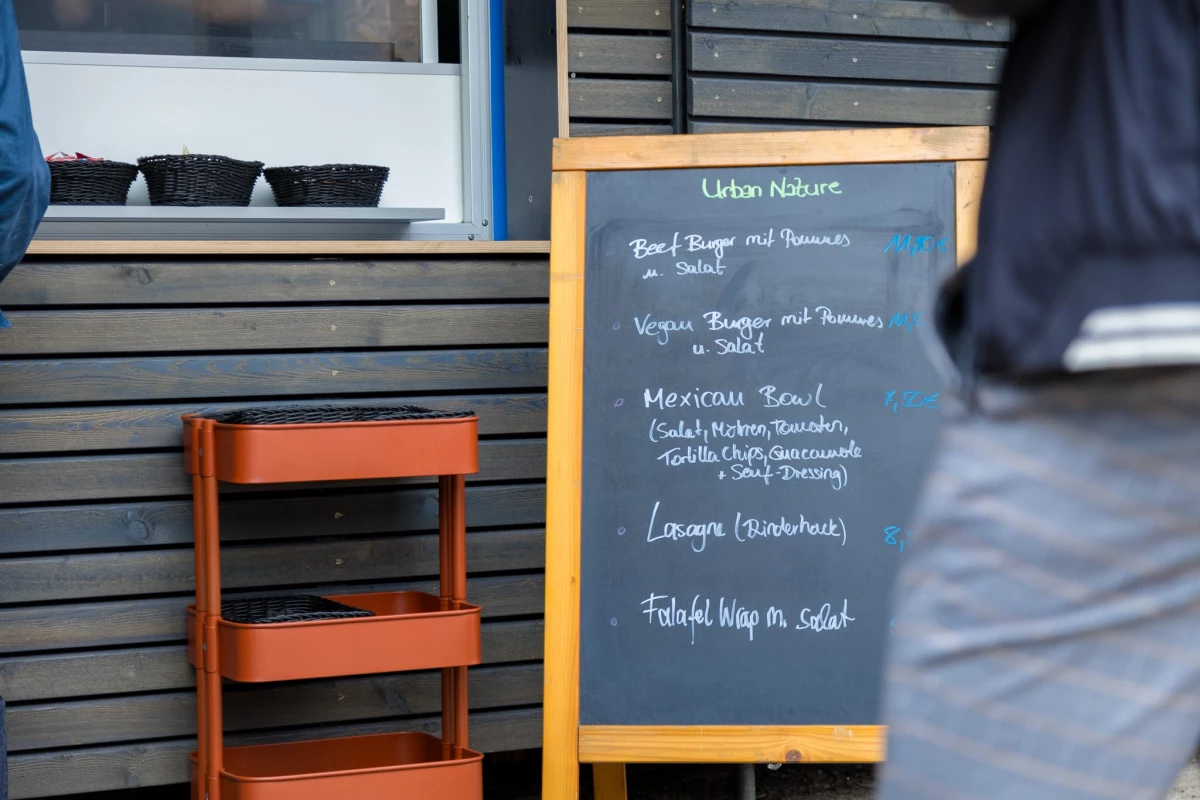 Urban Nature
Beef Burger mit Pommes 11,50 €
u. Salat
Vegan Burger mit Pommes 11,5
u. Salat
Mexican Bowl 7,50€
(Salat, Möhren, Tomaten,
Tortilla Chips, Guacamole
+ Senf-Dressing)
Lasagne (Rinderhack) 8,
Falafel Wrap m. Salat